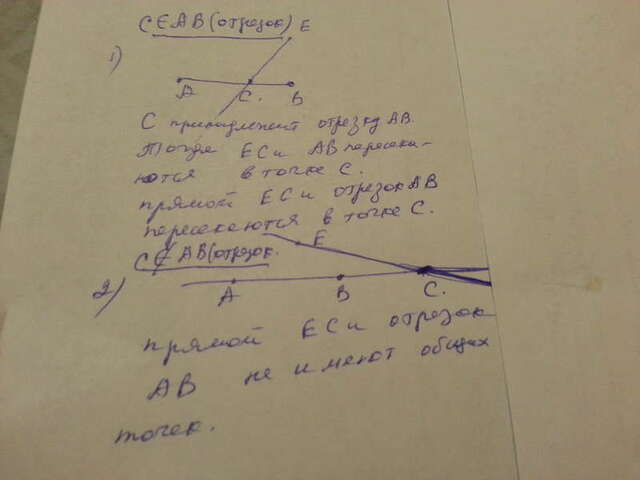 C ∈ AB (отрезок) E
1)
A C. B
C принадлежит отрезку AB.
Тогда EC и AB пересека-
ются в точке C.
прямой EC и отрезок AB
пересекаются в точке C.
E
C ∉ AB (отрезок.
2)
A B C.
прямой EC и отрезок
AB не имеют общих
точек.